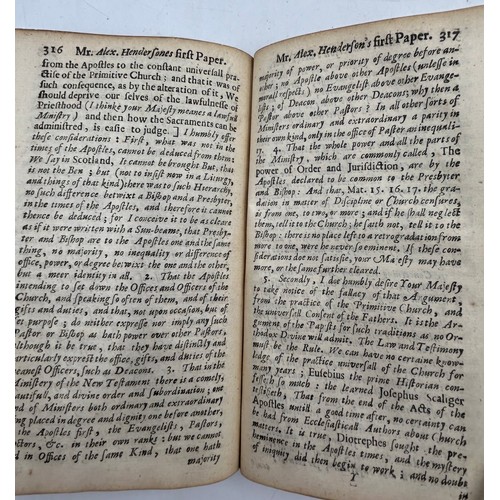 316 Mr. Alex. Hendersones first Paper.
from the Apostles to the constant universall pra-
ctise of the Primitive Church; and that it was of
such consequence, as by the alteration of it, We
should deprive our selves of the lawfulnesse of
Priesthood (I thinke your Majesty means a lawfull
Ministry) and then how the Sacraments can be
administred, is easie to judge.] I humbly offer
these considerations: First, what was not in the
times of the Apostles, cannot be deduced from them:
We say in Scotland, It cannot be brought But, that
is not the Ben; but (not to insist now in a Liturgy,
and things of that kind) there was no such Hierarchy,
no such difference betwixt a Bishop and a Presbyter,
in the times of the Apostles, and therefore it cannot
thence be deduced; for I conceive it to be as clear
as if it were written with a Sun-beame, that Presby-
ter and Bishop are to the Apostles one and the same
thing, no majority, no inequality or difference of
office, power, or degree betwixt the one and the other,
but a meer identity in all. 2. That the Apostles
intending to set down the Offices and Officers of the
Church, and speaking so often of them, and of their
gifts and duties, and that, not upon occasion, but of
set purpose; do neither expresse nor imply any such
Pastor or Bishop as hath power over other Pastors,
although it be true, that they have distinctly and
particularly exprest the office, gifts, and duties of the
meanest Officers, such as Deacons. 3. That in the
Ministery of the New Testament there is a comely,
beautifull, and divine order and subordination; one
kind of Ministers both ordinary and extraordinary
being placed in degree and dignity one before another,
as the Apostles first, the Evangelists, Pastors,
Doctors, &c. in their own ranks; but we cannot
find in Offices of the same Kind, that one hath
majority
Mr. Alex. Henderson's first Paper. 317
majority of power, or priority of degree before an-
other; no Apostle above other Apostles (unlesse in
morall respects) no Evangelist above other Evange-
lists; of Deacon above other Deacons; why then a
Pastor above other Pastors? In all other sorts of
Ministers ordinary and extraordinary a parity in
their own kind, only in the office of Pastor an inequali-
ty. 4. That the whole power and all the parts of
the Ministry, which are commonly called, The
power of Order and Jurisdiction, are by the
Apostles declared to be common to the Presbyter
and Bishop: And that, Mat. 15. 16. 17. the gra-
dation in matter of Discipline or Church censures,
is from one, to two, or more; and if he shall neglect
them, tell it to the Church; he saith not, tell it to the
Bishop: there is no place left to a retrogradation from
more to one, were he never so eminent. If these con-
siderations doe not satisfie, your Majesty may have
more, or the same further cleared.
5. Secondly, I do humbly desire Your Majesty
to take notice of the fallacy of that Argument,
from the practice of the Primitive Church, and
the universall Consent of the Fathers. It is the Ar-
gument of the Papists for such traditions as no Or-
thodox Divine will admit. The Law and Testimony
must be the Rule. We can have no certaine know-
ledge of the practice universall of the Church for
many years; Eusebius the prime Historian con-
fesseth so much: the learned Josephus Scaliger
testifieth, that from the end of the Acts of the
Apostles untill a good time after, no certainty can
be had from Ecclesiasticall Authors about Church
matters. It is true, Diotrephes sought the pre-
heminence in the Apostles times, and the mystery
of iniquity did then begin to work; and no doubt
in